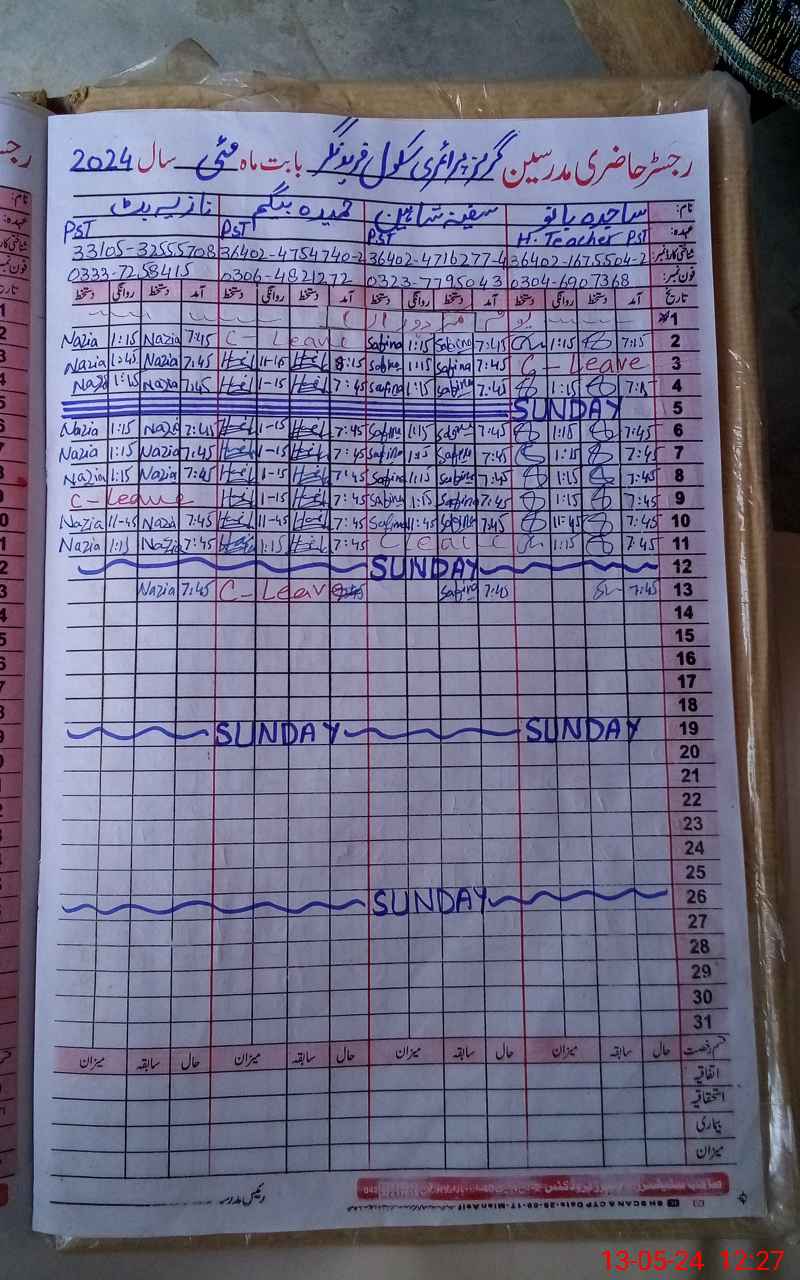 رجسٹر حاضری مدرسین گرلز پرائمری سکول فریدنگر بابت ماہ مئی سال 2024
نام: ساجدہ بانو سفینہ شاہین حمیدہ بیگم نازیہ بٹ
عہدہ: H. Teacher PST PST PST PST
شناختی کارڈ نمبر: 36402-1675504-2 36402-4716277-4 36402-4754740-2 33105-32555708
فون نمبر: 0304-6907368 0323-7795043 0306-4821272 0333-7258415
تاریخ آمد دستخط روانگی دستخط آمد دستخط روانگی دستخط آمد دستخط روانگی دستخط آمد دستخط روانگی دستخط
1 یوم
Nazia 1:15 Nazia 7:45 C-Leave Sabina 1:15 Sabina 7:45 1:15 7:15 2
Nazia 12:45 Nazia 7:45 11-16 8:15 Sabina 1:15 Sabina 7:45 C-Leave 3
Nazia 1:15 Nazia 7:45 1-15 7:45 Sabina 1:15 Sabina 7:45 1:15 7:15 4
SUNDAY 5
Nazia 1:15 Nazia 7:45 1-15 7:45 Sabina 1:15 Sabina 7:45 1:15 7:45 6
Nazia 1:15 Nazia 7:45 1-15 7:45 Sabina 1:15 Sabina 7:45 1:15 7:45 7
Nazia 1:15 Nazia 7:45 1-15 7:45 Sabina 1:15 Sabina 7:45 1:15 7:45 8
C-Leave 1-15 7:45 Sabina 1:15 Sabina 7:45 1:15 7:45 9
Nazia 11-45 Nazia 7:45 11-45 7:45 Sabina 11:45 Sabina 7:45 11:45 7:45 10
Nazia 1:15 Nazia 7:45 1:15 7:45 C Leave 1:15 7:45 11
SUNDAY 12
Nazia 7:45 C-Leave Sabina 7:45 7:45 13
14
15
16
17
18
SUNDAY SUNDAY 19
20
21
22
23
24
25
SUNDAY 26
27
28
29
30
31
قسم رخصت حال سابقہ میزان حال سابقہ میزان حال سابقہ میزان حال سابقہ میزان
اتفاقیہ
استحقاقیہ
بیماری
میزان
رئیس مدرسہ
13-05-24 12:27